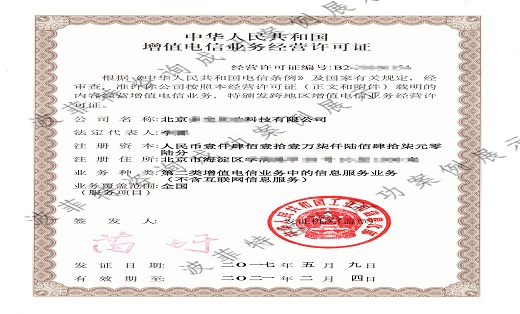 中华人民共和国
增值电信业务经营许可证
经营许可证编号:B2-
根据《中华人民共和国电信条例》及国家有关规定,经
审查,准许你公司按照本经营许可证(正文和附件)载明的
内容经营增值电信业务,特颁发跨地区增值电信业务经营许
可证。
公司名称:北京 科技有限公司
法定代表人:李
注册资本:人民币壹仟肆佰壹拾壹万柒仟陆佰肆拾柒元零
陆分
注册住所:北京市海淀区学
业务种类:第二类增值电信业务中的信息服务业务
(不含互联网信息服务)
业务覆盖范围:全国
(服务项目)
签发人: 发证机关盖章
苗圩
中华人民共和国工业和信息化部
发证日期:二〇一七年五月九日
有效期至:二〇二一年二月四日
波菲特咨询成功案例展示